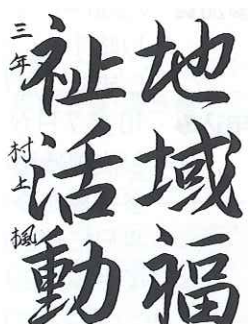 地域福
祉活動
三年 村上 楓